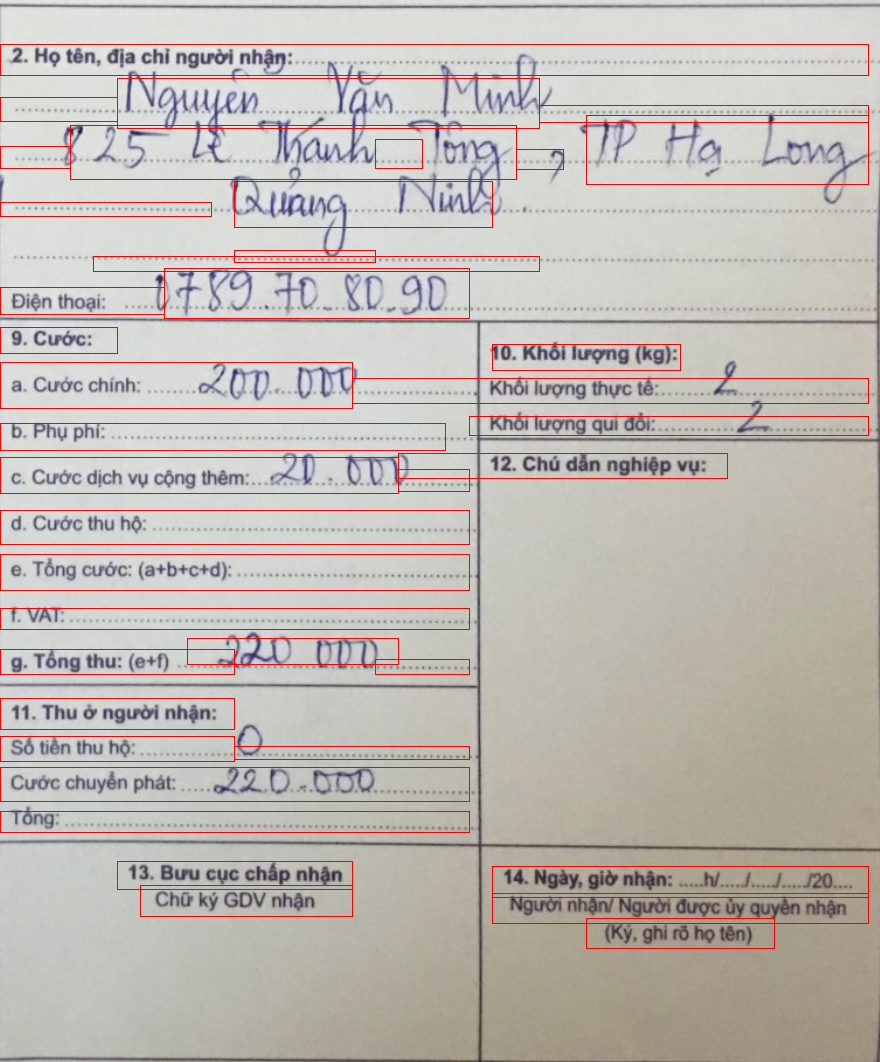 2. Họ tên, địa chỉ người nhận:
Nguyễn Văn Minh
825 Lê Thánh Tông, TP Hạ Long
Quảng Ninh.
Điện thoại: 0789.70.80.90
9. Cước:
a. Cước chính: 200.000
b. Phụ phí:
c. Cước dịch vụ cộng thêm: 20.000
d. Cước thu hộ:
e. Tổng cước: (a+b+c+d):
f. VAT:
g. Tổng thu: (e+f) 220 000
10. Khối lượng (kg):
Khối lượng thực tế: 2
Khối lượng qui đổi: 2
11. Thu ở người nhận:
Số tiền thu hộ: 0
Cước chuyển phát: 220.000
Tổng:
12. Chú dẫn nghiệp vụ:
13. Bưu cục chấp nhận
Chữ ký GDV nhận
14. Ngày, giờ nhận: .....h/...../...../...../20....
Người nhận/ Người được ủy quyền nhận
(Ký, ghi rõ họ tên)